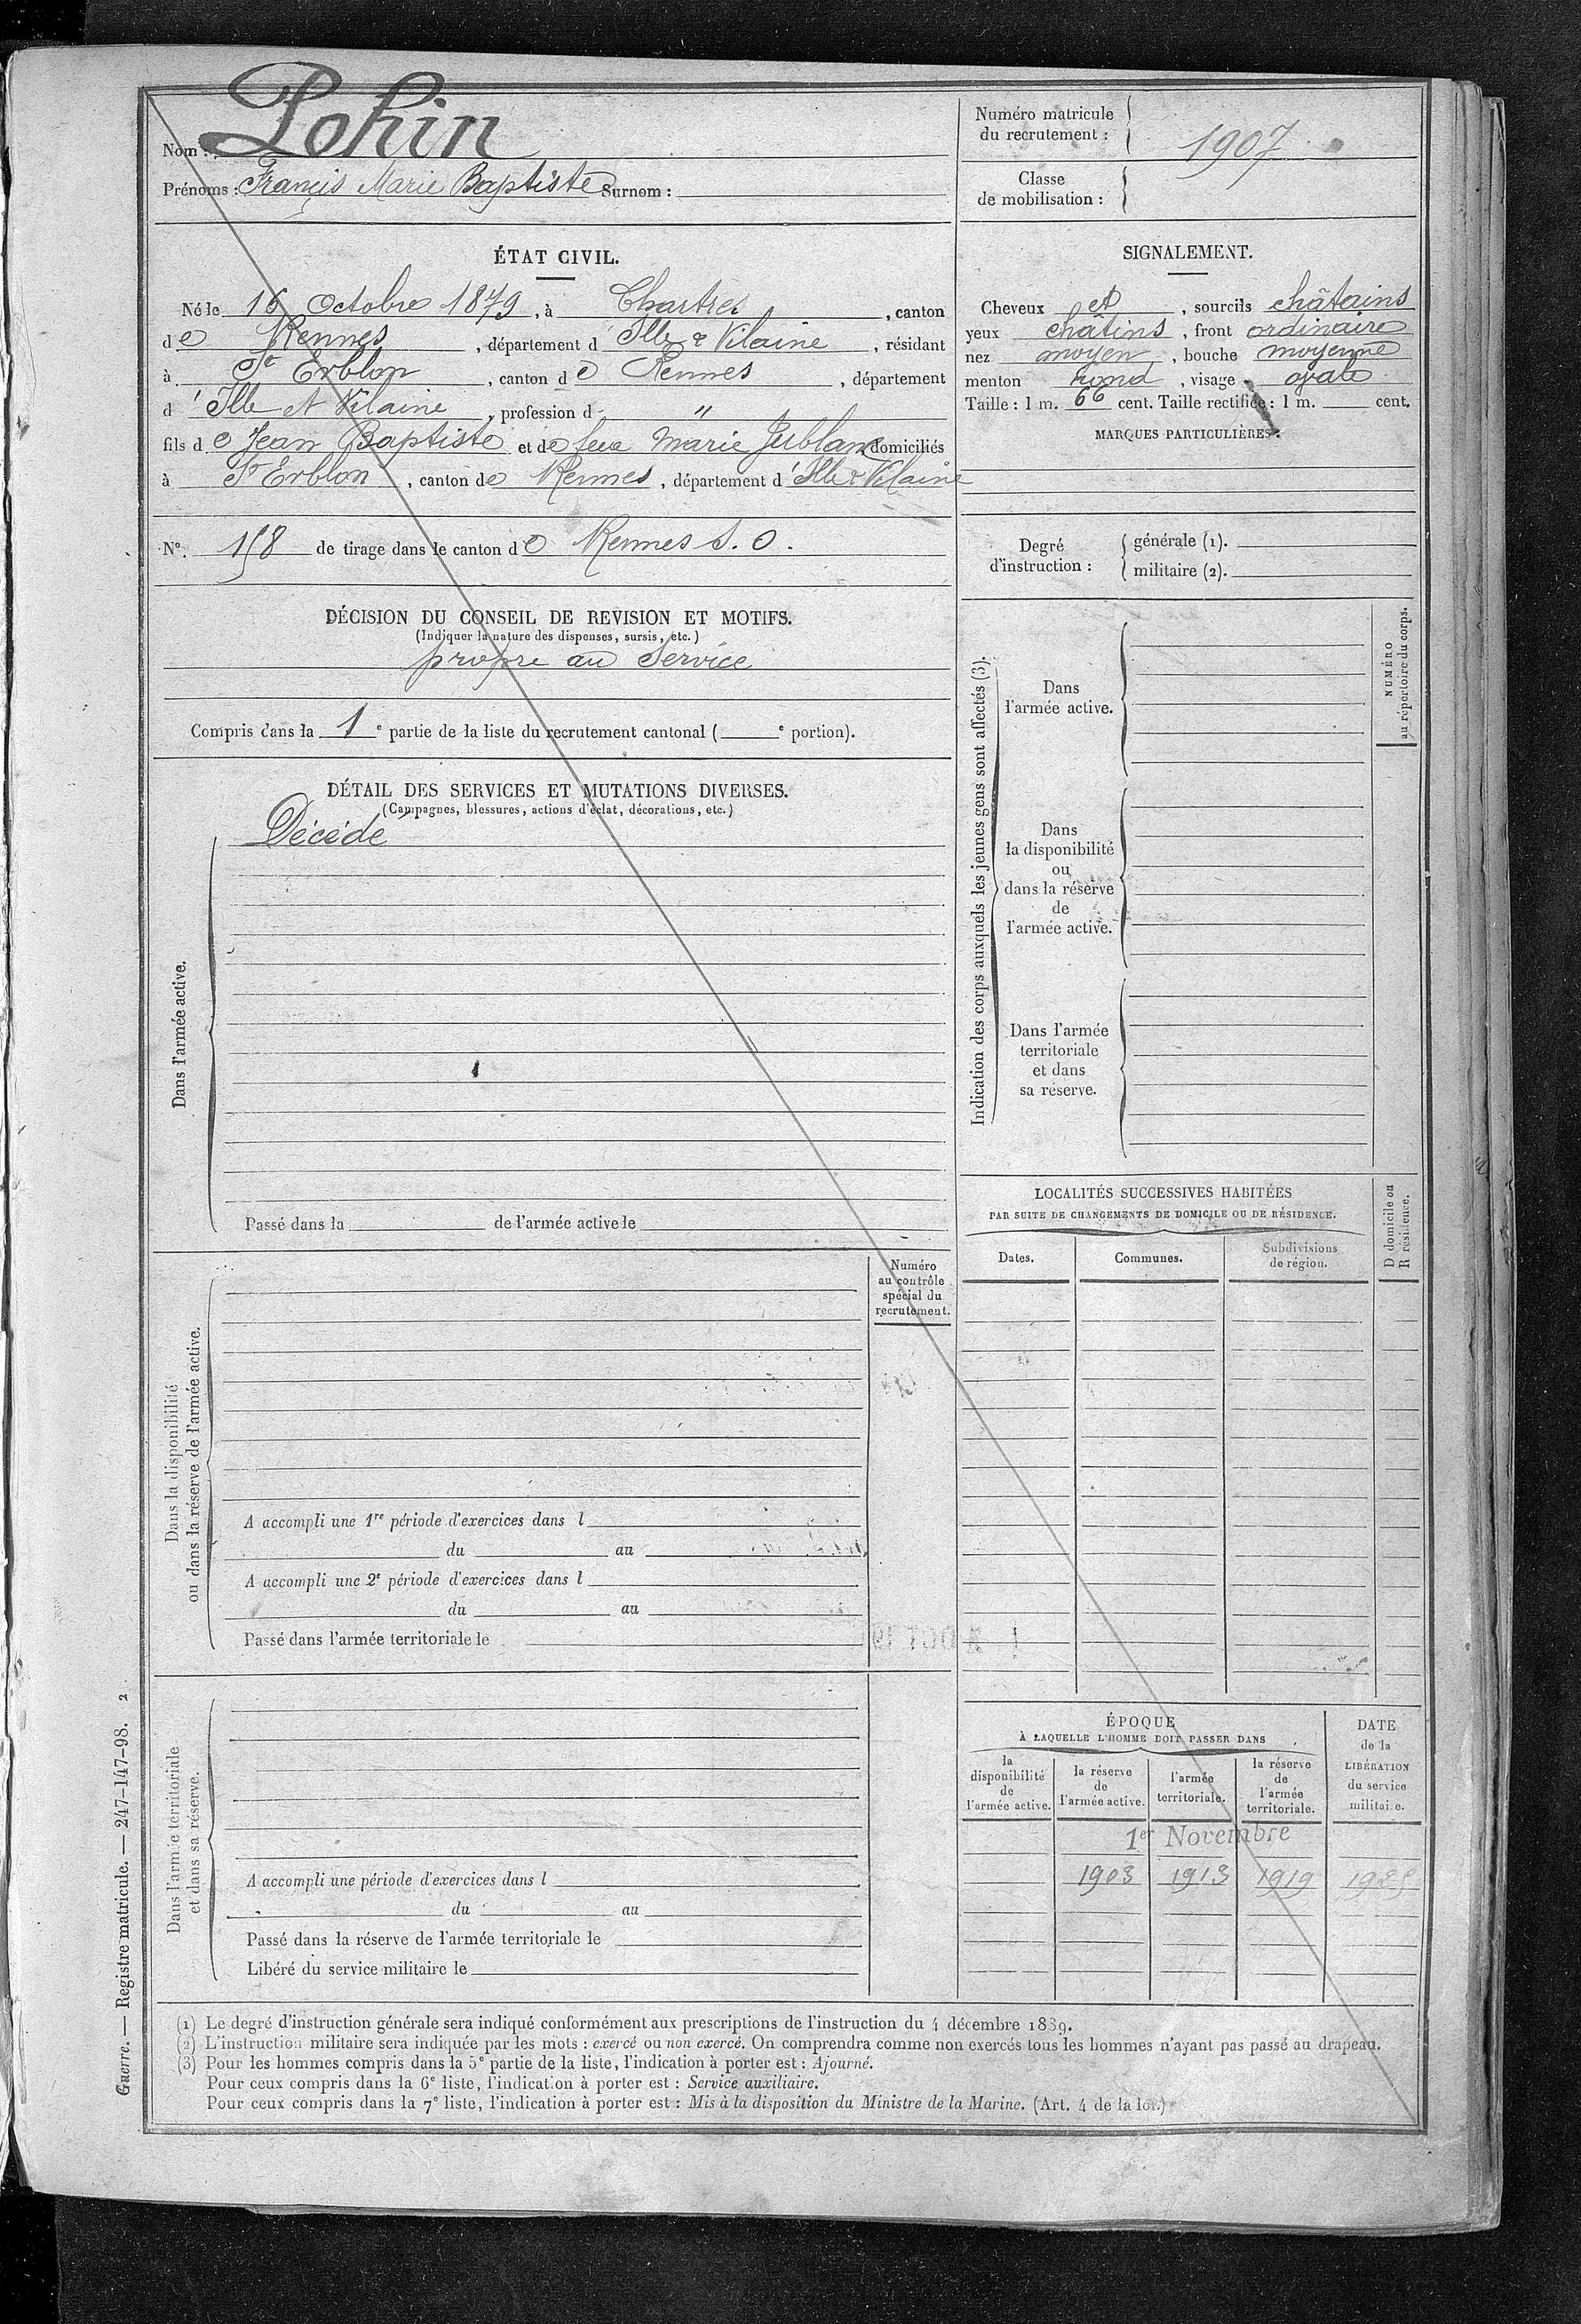 Nom : Pohin
Prénoms : Francis Marie Baptiste Surnom :
Numéro matricule du recrutement : 1907
Classe de mobilisation :
ÉTAT CIVIL.
Né le 16 Octobre 1879, à Chartres, canton
de Rennes, département d'Ille & Vilaine, résidant
à St Erblon, canton de Rennes, département
d'Ille et Vilaine, profession d "
fils de Jean Baptiste et de feue Marie Jublanc domiciliés
à St Erblon, canton de Rennes, département d'Ille & Vilaine
No. 158 de tirage dans le canton de Rennes S. O.
DÉCISION DU CONSEIL DE REVISION ET MOTIFS.
(Indiquer la nature des dispenses, sursis, etc.)
propre au Service
Compris dans la 1e partie de la liste du recrutement cantonal ( e portion).
DÉTAIL DES SERVICES ET MUTATIONS DIVERSES.
(Campagnes, blessures, actions d'éclat, décorations, etc.)
Dans l'armée active.
Décédé
Passé dans la de l'armée active le
Dans la disponibilité
ou dans la réserve de l'armée active.
Numéro
au contrôle
spécial du
recrutement.
A accompli une 1re période d'exercices dans l
du au
A accompli une 2e période d'exercices dans l
du au
Passé dans l'armée territoriale le
Dans l'armée territoriale
et dans sa réserve.
A accompli une période d'exercices dans l
du au
Passé dans la réserve de l'armée territoriale le
Libéré du service militaire le
SIGNALEMENT.
Cheveux et, sourcils châtains
yeux châtins, front ordinaire
nez moyen, bouche moyenne
menton rond, visage ovale
Taille : 1 m. 66 cent. Taille rectifiée : 1 m. cent.
MARQUES PARTICULIÈRES :
Degré d'instruction :
générale (1).
militaire (2).
Indication des corps auxquels les jeunes gens sont affectés (3).
NUMÉRO
au répertoire du corps.
Dans
l'armée active.
Dans
la disponibilité
ou
dans la réserve
de
l'armée active.
Dans l'armée
territoriale
et dans
sa réserve.
LOCALITÉS SUCCESSIVES HABITÉES
PAR SUITE DE CHANGEMENTS DE DOMICILE OU DE RÉSIDENCE.
D domicile ou
R résidence.
Dates. Communes. Subdivisions de région.
ÉPOQUE
À LAQUELLE L'HOMME DOIT PASSER DANS
la disponibilité de l'armée active.
la réserve de l'armée active.
l'armée territoriale.
la réserve de l'armée territoriale.
DATE de la LIBÉRATION du service militaire.
1er Novembre
1903 1913 1919
(1) Le degré d'instruction générale sera indiqué conformément aux prescriptions de l'instruction du 4 décembre 1889.
(2) L'instruction militaire sera indiquée par les mots : exercé ou non exercé. On comprendra comme non exercés tous les hommes n'ayant pas passé au drapeau.
(3) Pour les hommes compris dans la 5e partie de la liste, l'indication à porter est : Ajourné.
Pour ceux compris dans la 6e liste, l'indication à porter est : Service auxiliaire.
Pour ceux compris dans la 7e liste, l'indication à porter est : Mis à la disposition du Ministre de la Marine. (Art. 4 de la loi.)
Guerre. — Registre matricule. — 247-147-98. 2